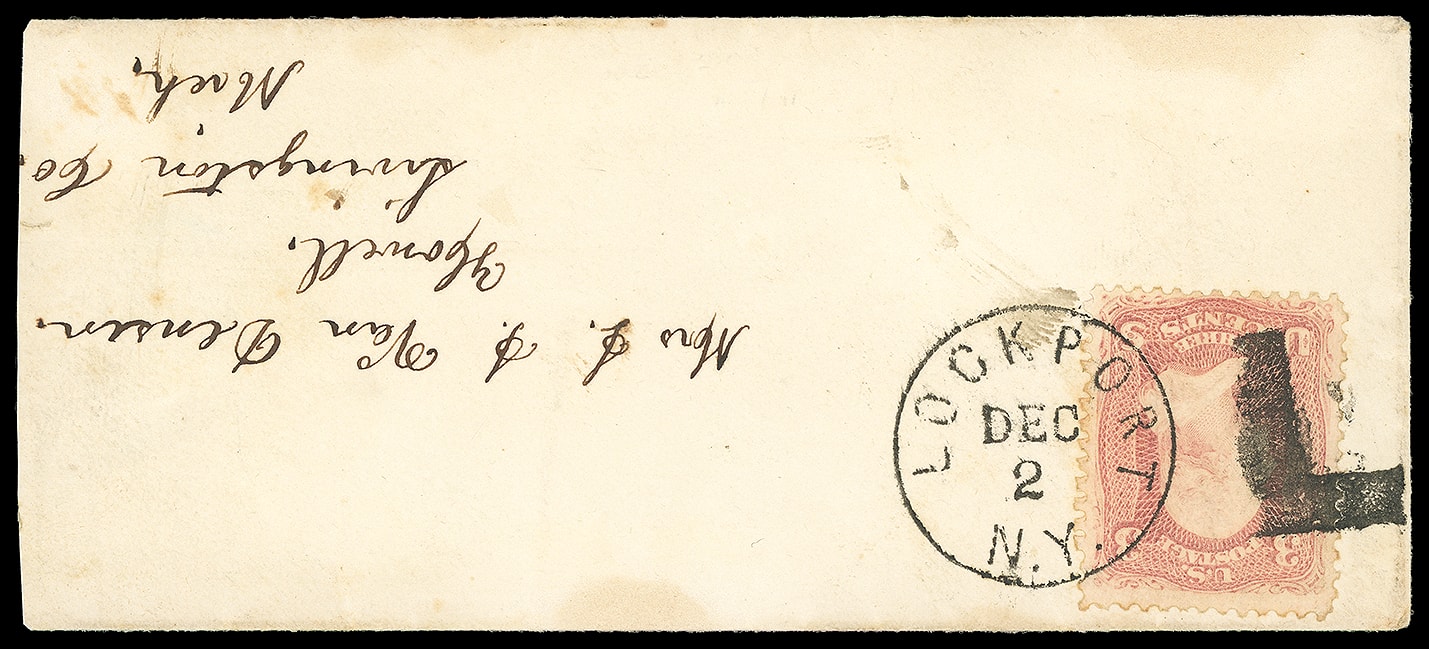 Mrs L. S. Van Densen.
Howell.
Livingston Co.
Mich.
LOCKPORT
DEC
2
N.Y.
U.S. POSTAGE
3 3
U THREE S
CENTS